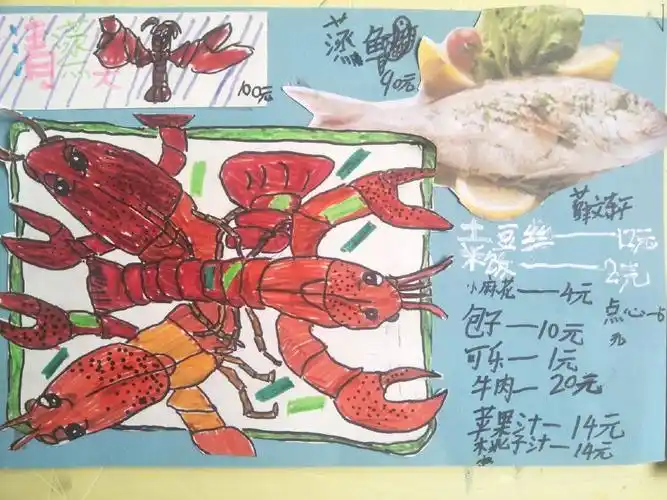 清蒸
100元
蒸鱼
90元
土豆丝——12元
米饭——2元
小麻花——4元
点心—5
元
包子—10元
可乐—1元
牛肉—20元
苹果汁—14元
桃子汁—14元